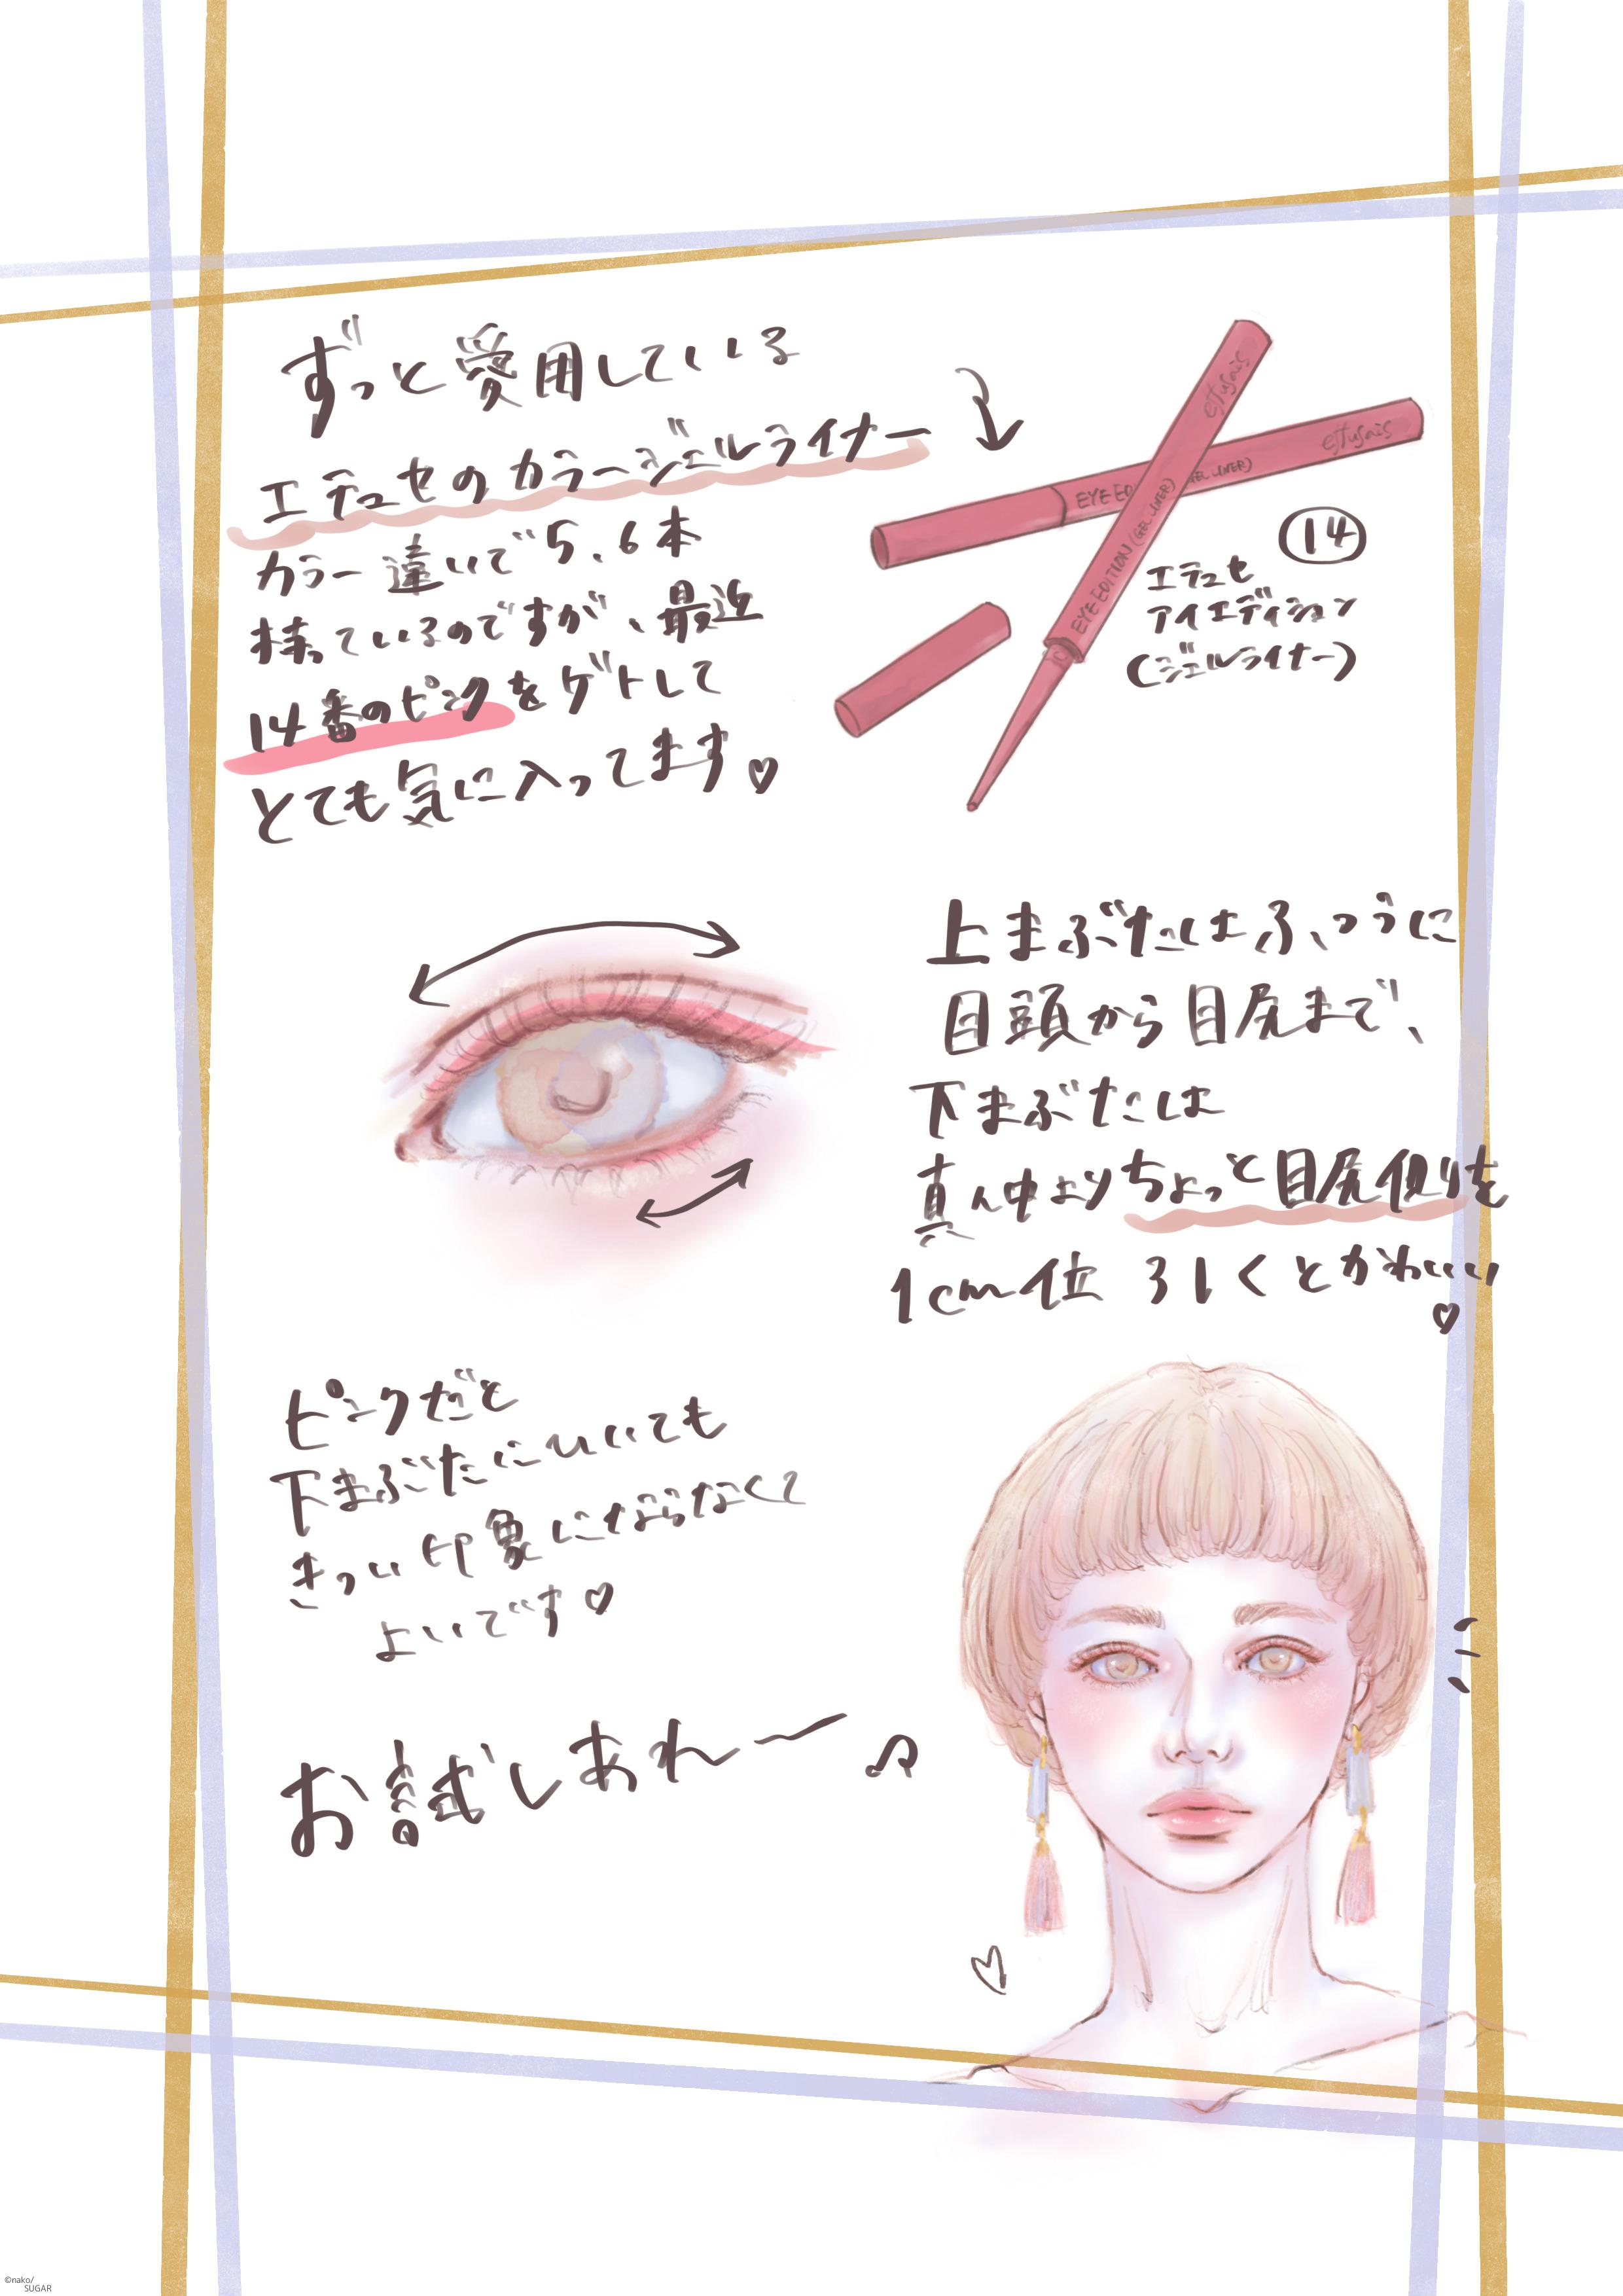 ずっと愛用している
エテュセのカラージェルライナー
カラー違いで5、6本
持っているのですが、最近
14番のピンクをゲトして
とても気に入ってます♡
ettusais
ettusais
EYE EDITION (GEL LINER)
EYE EDI
GEL LINER)
14
エテュセ
アイエディション
(ジェルライナー)
上まぶたはふつうに
目頭から目尻まで、
下まぶたは
真ん中よりちょっと目尻側を
1cm位 引くとかわいい
♡
ピンクだと
下まぶたにひいても
きつい印象にならなくて
よいです♡
お試しあれー♪
©nako/
SUGAR